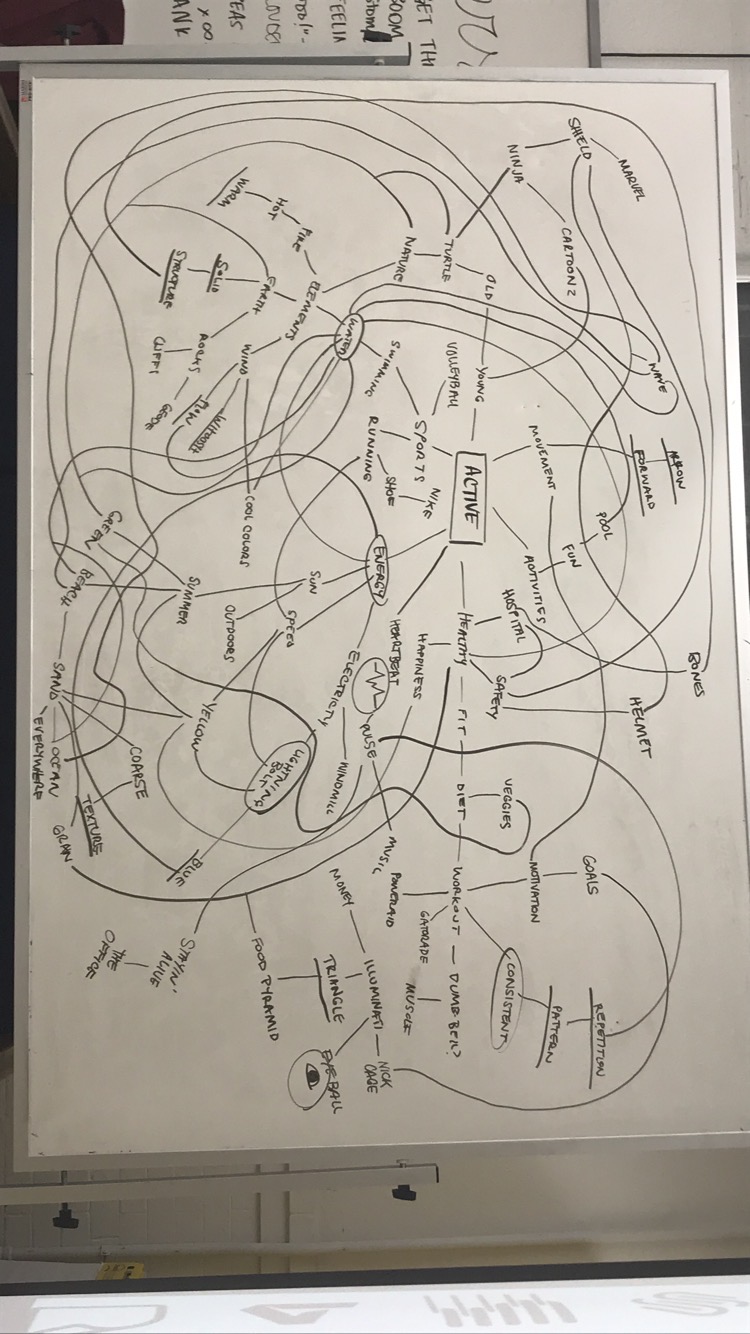 GET TH
BOOM
FEELIN
EAS
ANK
MARVEL
SHIELD
NINJA
CARTOON?
TURTLE
NATURE
OLD
YOUNG
FIRE
HOT
WARM
ELEMENTS
EARTH
SOLID
STRUCTURE
ROCKS
CLIFFS
GEODE
WIND
FLOW
WHOOSH
WATER
SWIMMING
VOLLEYBALL
SPORTS
RUNNING
SHOE
NIKE
ACTIVE
MOVEMENT
WAVE
ARROW
FORWARD
POOL
FUN
ACTIVITIES
COOL COLORS
ENERGY
SUN
SPEED
OUTDOORS
SUMMER
GREEN
BEACH
SAND
EVERYWHERE
OCEAN
COARSE
TEXTURE
GRAIN
YELLOW
BLUE
LIGHTNING
BOLT
ELECTRICITY
WINDMILL
HEARTBEAT
PULSE
MUSIC
HAPPINESS
HEALTHY
HOSPITAL
SAFETY
BONES
HELMET
FIT
DIET
VEGGIES
WORKOUT
MOTIVATION
GOALS
POWERAID
GATORADE
CONSISTENT
PATTERN
REPETITION
DUMB-BELL?
MUSCLE
MONEY
ILLUMINATI
TRIANGLE
NICK
CAGE
EYEBALL
FOOD PYRAMID
STAYN'
ALIVE
THE
OFFICE